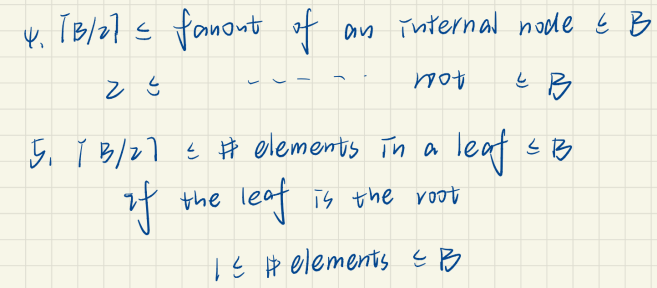 4. ⌈B/2⌉ ≤ fanout of an internal node ≤ B
2 ≤ ----- root ≤ B
5. ⌈B/2⌉ ≤ # elements in a leaf ≤ B
if the leaf is the root
1 ≤ # elements ≤ B